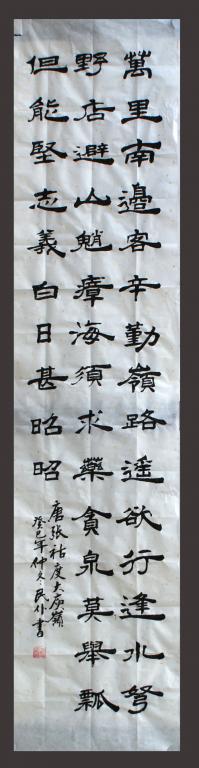 萬里南邊客辛勤嶺路遙欲行逢水弩
野店避山魈瘴海須求藥貪泉莫舉瓢
但能堅志義白日甚昭昭
唐張祜度大庾嶺
癸巳年仲冬民仆書